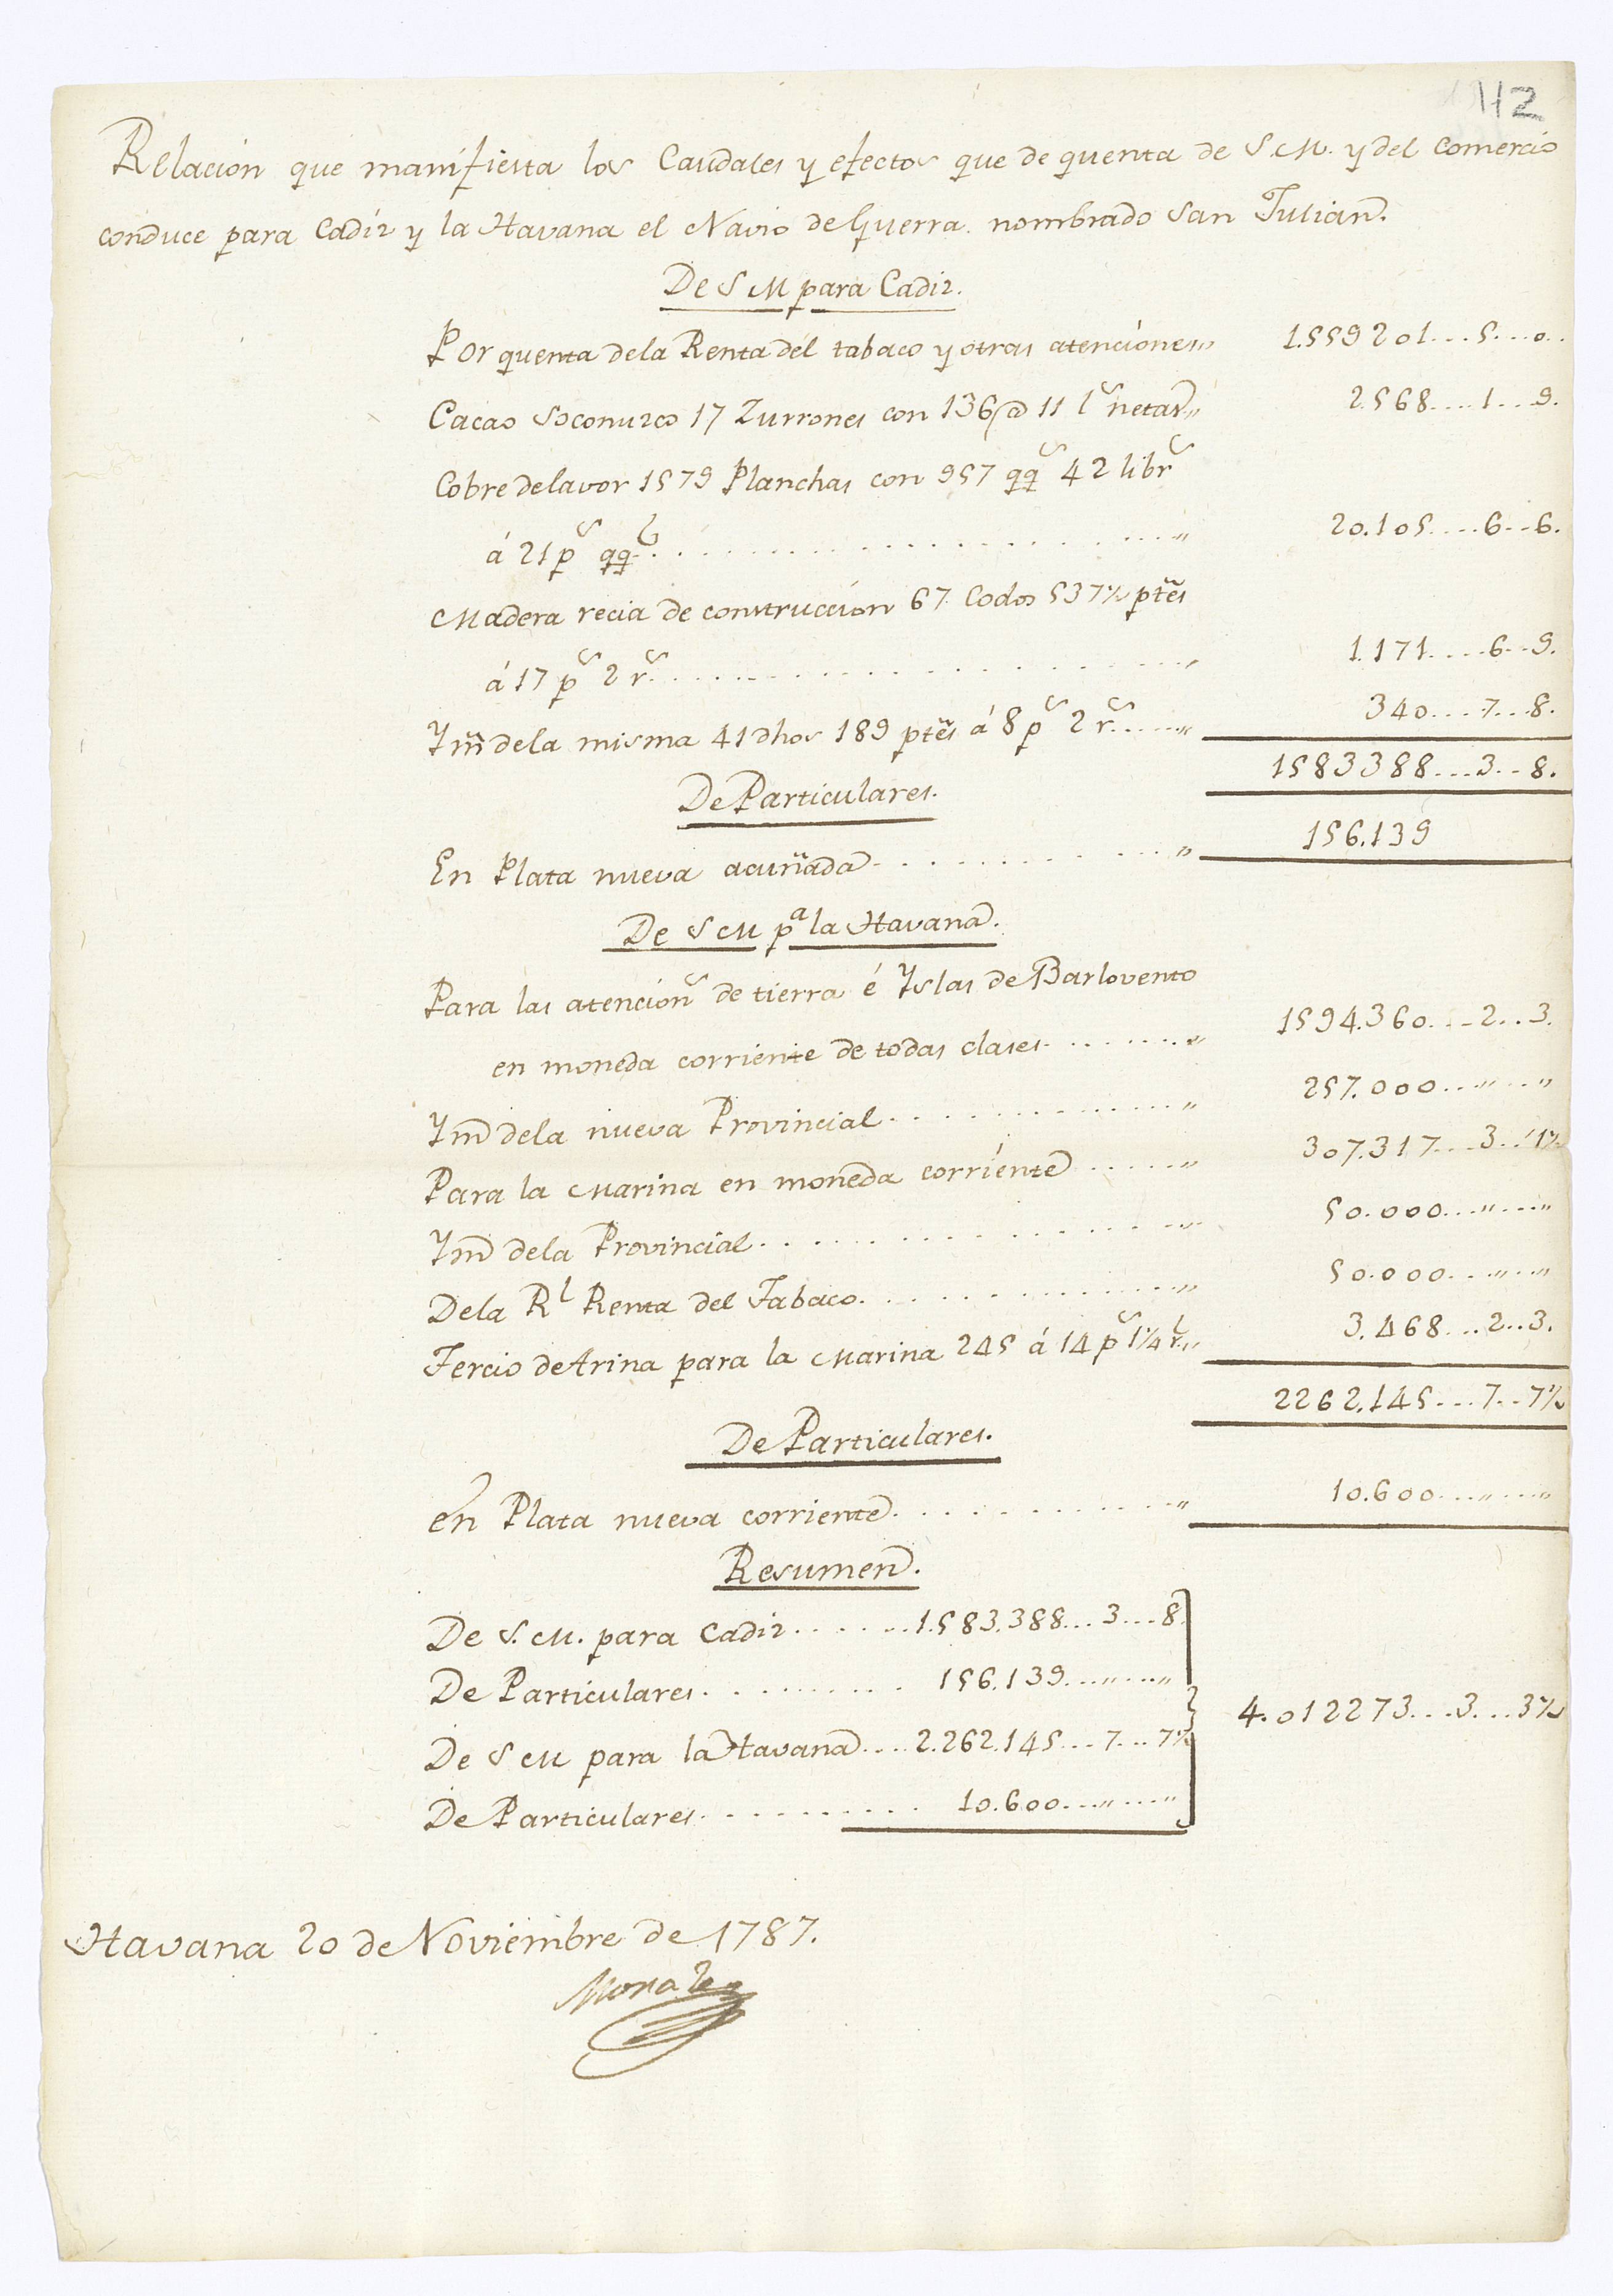 112
Relacion que manifiesta los Caudales y efectos que de quenta de S.M. y del Comercio
conduce para Cadiz y la Havana el Navio de Guerra nombrado San Julian.
De S M para Cadiz.
Por quenta dela Renta del tabaco y otras atenciones,, 1.559201...5...0..
Cacao Soconuzco 17 Zurrones con 136@ 11 ls netas,, 2.568....1...9.
Cobre delavor 1579 Planchas con 957 qqs 42 librs
á 21 ps qql. . . . . . . . . . . . . . . . . ,, 20.105....6..6.
Madera recia de construccion 67 Codos 537½ ptẽs
á 17 ps 2 rs. . . . . . . . . . . . . . . . . 1.171....6..9.
Ym̃ dela misma 41 dhos 189 ptẽs á 8 ps 2 rs.....,, 340...7...8.
1583388...3..8.
De Particulares.
En Plata nueva acuñada. . . . . . . . . . ,, 156.139
De S M pa la Havana.
Para las atencions de tierra é Yslas de Barlovento
en moneda corriente de todas clases. . . . . . . ,, 1594.360...2..3.
Ym dela nueva Provincial. . . . . . . . . . . ,, 257.000..,,...,,
Para la Marina en moneda corriente ......,, 307.317...3...1½
Ym dela Provincial. . . . . . . . . . . . . ,, 50.000...,,...,,
Dela Rl Renta del Tabaco. . . . . . . . . . . ,, 50.000...,,...,,
Tercio de Arina para la Marina 245 á 14 ps 1¼ rl.,, 3.468...2..3.
2262.145...7..7½
De Particulares.
En Plata nueva corriente. . . . . . . . . . ,, 10.600...,,...,,
Resumen.
De S.M. para Cadiz.......1.583.388...3...8.
De Particulares. . . . . . . . . 156.139...,,...,,
4.012273...3...3½
De S M para la Havana....2.262.145...7...7½
De Particulares. . . . . . . . . . 10.600...,,...,,
Havana 20 de Noviembre de 1787.
Morales